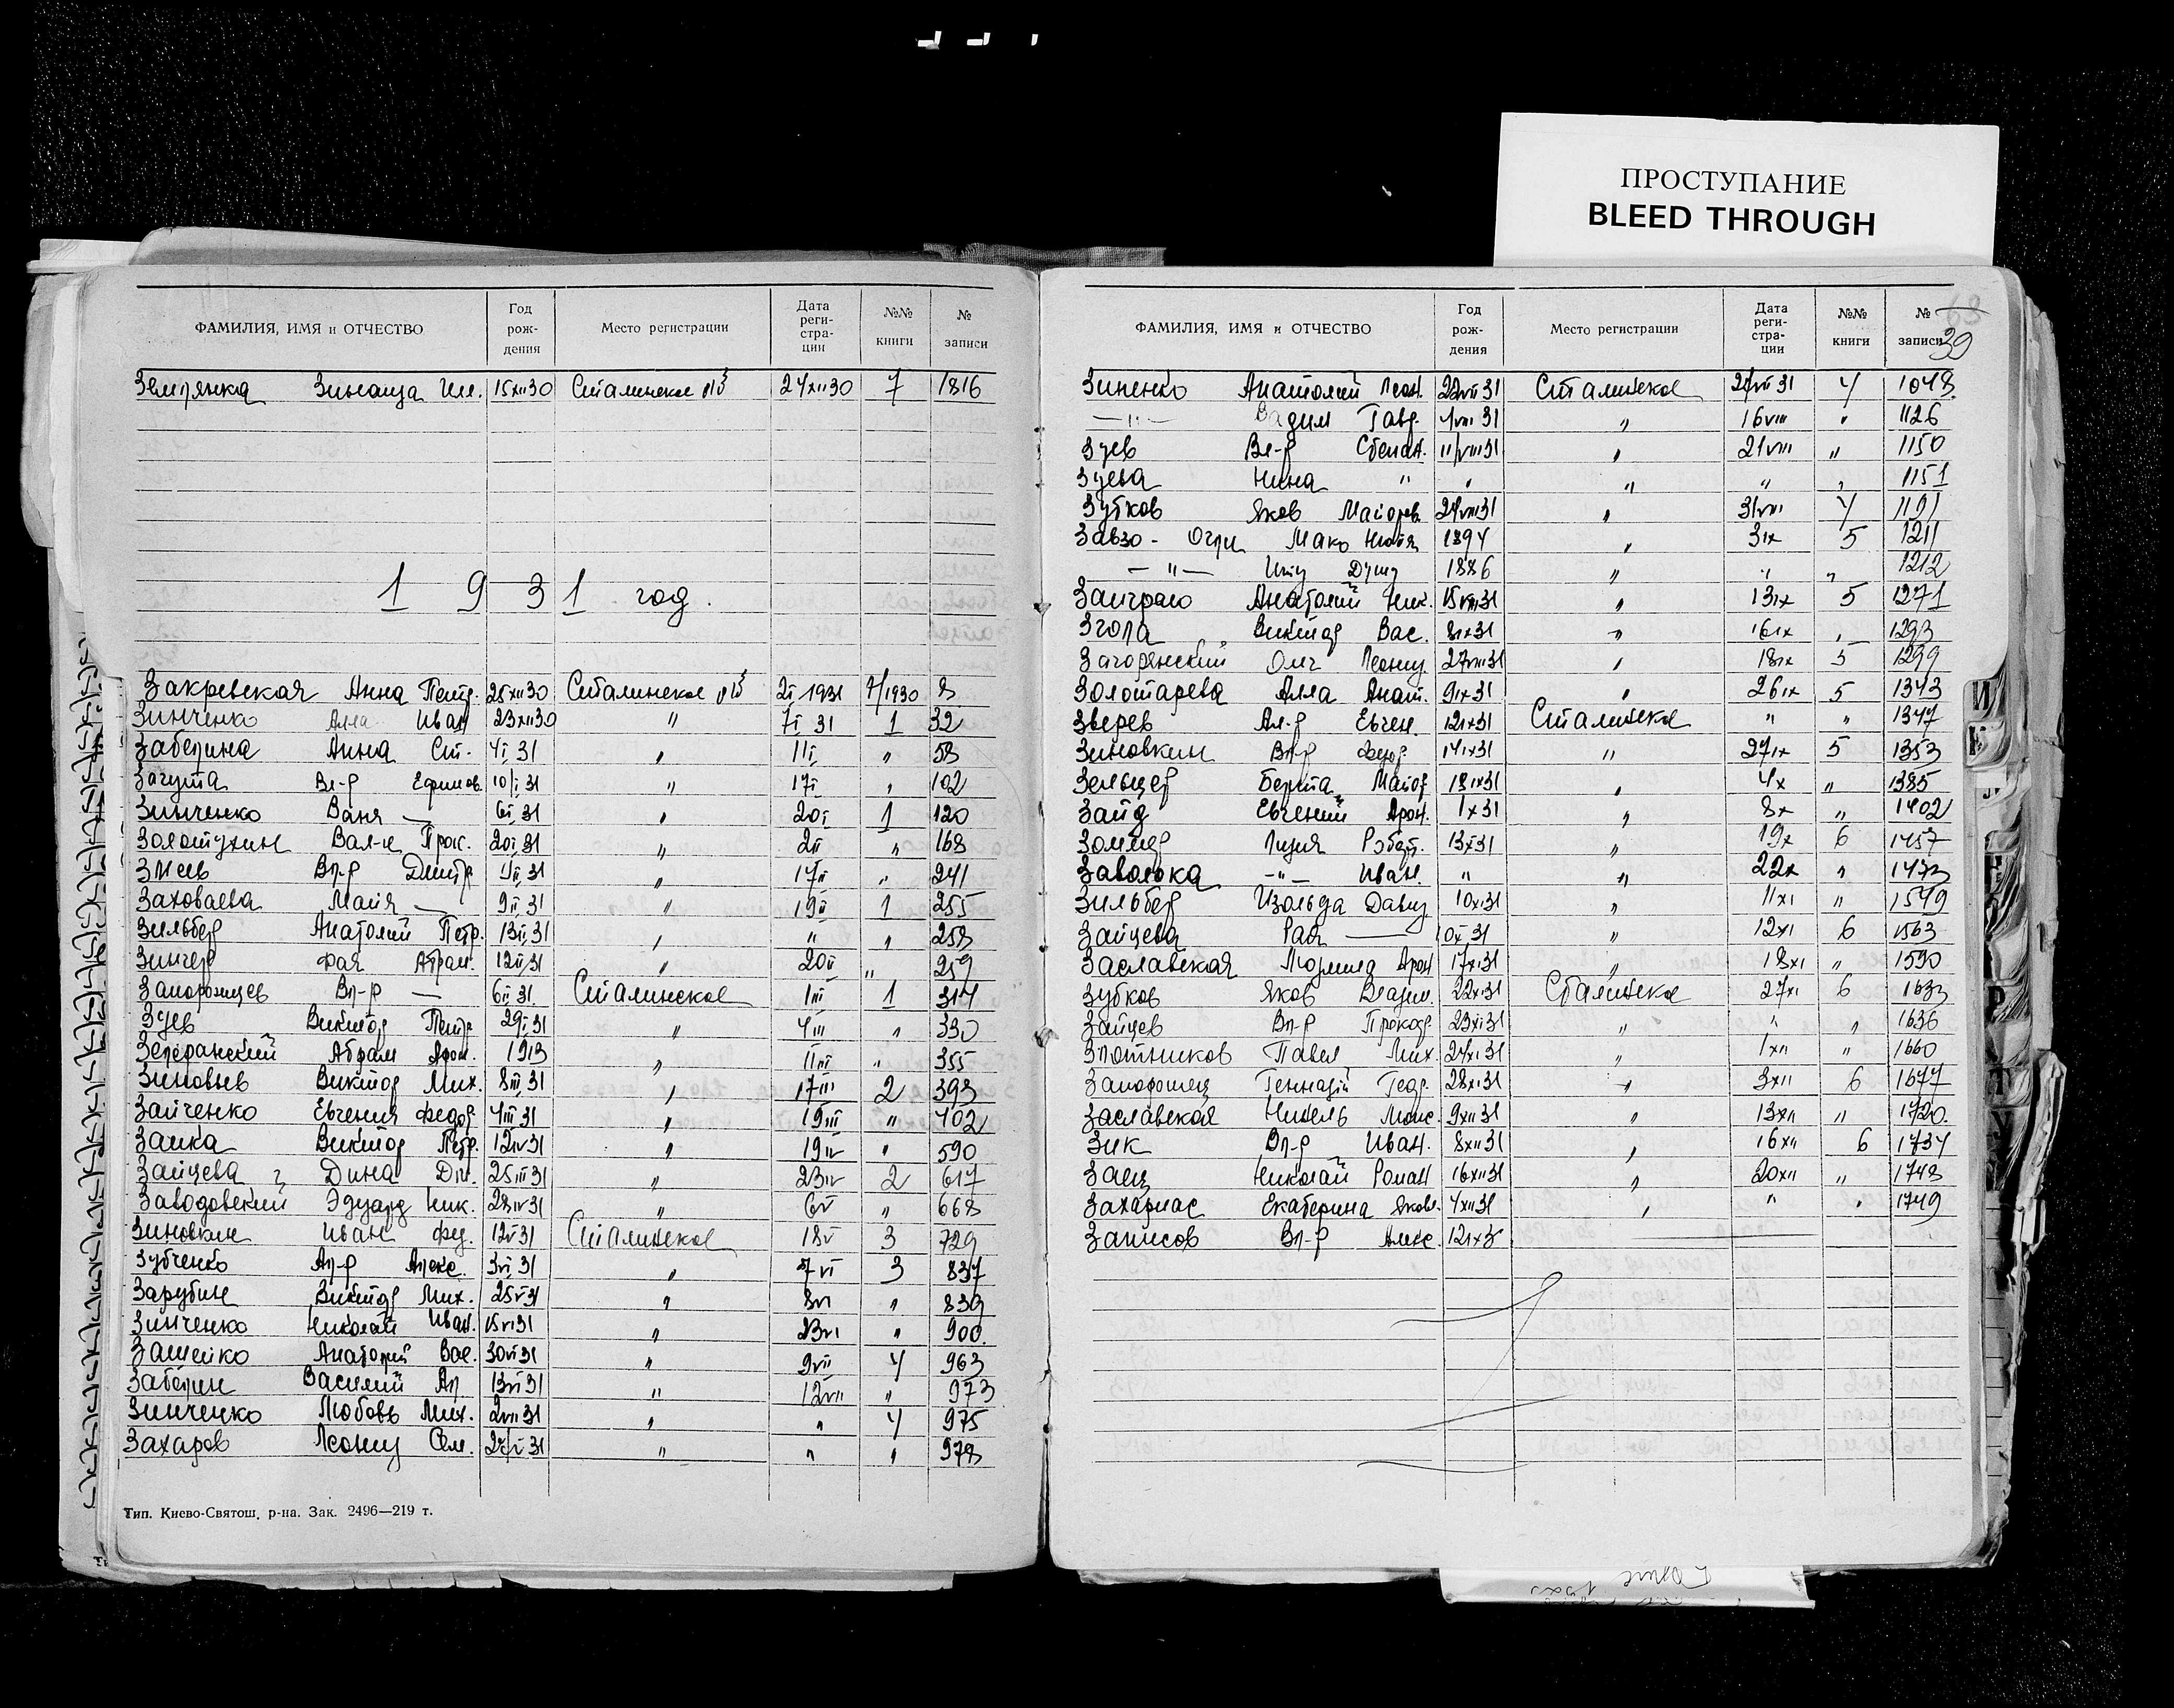 ПРОСТУПАНИЕ
BLEED THROUGH
ФАМИЛИЯ, ИМЯ и ОТЧЕСТВО Год рождения Место регистрации Дата регистрации №№ книги № записи
Землянка Зинаида Ил. 15XII30 Сталинское 24XII30 7 1816
1931 год.
Закревская Анна Петр. 25XII30 Сталинское 2I 1931 7/1930 8
Зинченко Алла Иван 23XII30 " 7I 31 1 32
Заберина Анна Ст. 4I 31 " 11I " 58
Загута Вл-р Ефимов 10I 31 " 17I " 102
Зинченко Ваня — 6I 31 " 20I 1 120
Золотухин Вал-н Прок. 20I 31 " 2II " 168
Змеев Вл-р Дмитр 4II 31 " 17II " 241
Заховаева Майя — 9II 31 " 19II 1 255
Зильбер Анатолий Петр. 13II 31 " " " 258
Зингер Фая Абрам. 12II 31 " 20II " 259
Запорожцев Вл-р — 6II 31 Сталинское 1III 1 317
Зуев Виктор Петр 29I 31 " 4III " 330
Абрам Арон. 1913 " 11III " 355
Зиновьев Виктор Мих. 8III 31 " 17III 2 393
Зайченко Евгения Федор 4III 31 " 19III " 402
Заика Виктор Петр. 12IV31 " 19IV " 590
Зайцева Дина Дм. 25III31 " 23IV 2 617
Заводовский Эдуард Ник. 28IV31 " 6V " 668
Зиновкин Иван Фед. 12V31 Сталинское 18V 3 729
Зубченко Ал-р Алекс. 3VI 31 " 7VI 3 837
Зарубин Виктор Мих. 25V31 " 8VI " 839
Зинченко Николай Иван. 15VI31 " 23VI " 900
Зашейко Анатолий Вас. 30VI31 " 9VII 4 963
Заберин Василий Ал. 13VI31 " 12VII " 973
Зинченко Любовь Мих. 2VII31 " " 4 975
Захаров Леонид Сем. 31 " " " 978
Тип. Киево-Святош. р-на. Зак. 2496—219 т.
39
ФАМИЛИЯ, ИМЯ и ОТЧЕСТВО Год рождения Место регистрации Дата регистрации №№ книги № записи
Зиненко Анатолий Леон. 22VII31 Сталинское VII 31 4 1048
—"— Вадим Гавр. VIII 31 " 16VIII " 1126
Зуев Вл-р Степан. 11VIII31 " 21VIII " 1150
Зуева Нина " " " " " 1151
Зубков Яков Майоров. 24VIII31 " 31VIII 4 1191
Завзо - Оглы Мако 1894 " 3IX 5 1211
—"— 1886 " " " 1212
Заиграю Анатолий Ник. 15VIII31 " 13IX 5 1271
Згола Виктор Вас. 8IX31 " 16IX " 1293
Загорянский Олег Леонид. 27VIII31 " 18IX 5 1299
Золотарева Алла Анат. 9IX31 " 26IX 5 1343
Зверев Ал-р Евген. 12IX31 Сталинское " " 1347
Зиновкин Вл-р Федор. 14IX31 " 27IX 5 1353
Зельцер Берта Майор 18IX31 " 4X " 1385
Зайд Евгений Арон. 1X31 " 8X " 1402
Зоммер Лидия Роберт. 13X31 " 19X 6 1457
Заволока —"— Иван. " " 22X " 1473
Зильбер Изольда Давид. 10XI31 " 11XI " 1549
Зайцева Рая — 31 " 12XI 6 1563
Заславская Людмила Арон 17XI31 " 18XI " 1590
Зубков Яков Владим. 22XI31 Сталинское 27XI 6 1633
Зайцев Вл-р Прокоф. 23XI31 " " " 1636
Злотников Павел Мих. 24XI31 " 1XII " 1660
Запорожец Геннадій Геор. 28XI31 " 3XII 6 1677
Заславская Нинель Моис. 9XII31 " 13XII " 1720
Зик Вл-р Иван. 8XII31 " 16XII 6 1734
Заец Николай Роман 16XII31 " 20XII " 1748
Захариас Екатерина Яковл. 4XII31 " " " 1749
Записов Вл-р Алекс. 12IX3